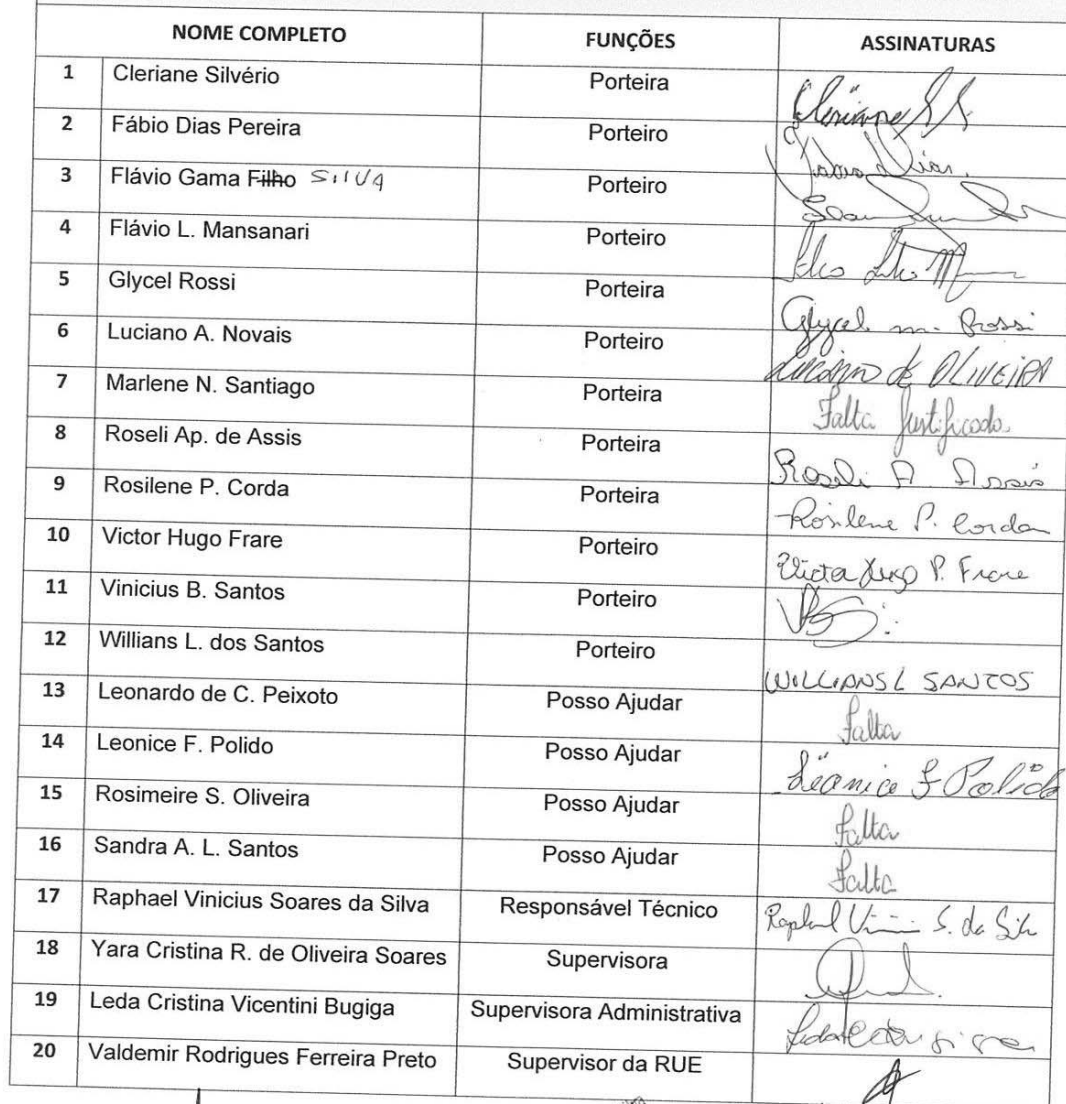 NOME COMPLETO FUNÇÕES ASSINATURAS
1 Cleriane Silvério Porteira
2 Fábio Dias Pereira Porteiro Dias
3 Flávio Gama Filho SILVA Porteiro
4 Flávio L. Mansanari Porteiro
5 Glycel Rossi Porteira Glycel m. Rossi
6 Luciano A. Novais Porteiro Luciano de OLIVEIRA
7 Marlene N. Santiago Porteira Falta Justificada
8 Roseli Ap. de Assis Porteira Roseli A. Assis
9 Rosilene P. Corda Porteira Rosilene P. Cordan
10 Victor Hugo Frare Porteiro Victor Hugo P. Frare
11 Vinicius B. Santos Porteiro
12 Willians L. dos Santos Porteiro WILLIANS L SANTOS
13 Leonardo de C. Peixoto Posso Ajudar Falta
14 Leonice F. Polido Posso Ajudar Leonice F Polido
15 Rosimeire S. Oliveira Posso Ajudar Falta
16 Sandra A. L. Santos Posso Ajudar Falta
17 Raphael Vinicius Soares da Silva Responsável Técnico Raphael S. da
18 Yara Cristina R. de Oliveira Soares Supervisora
19 Leda Cristina Vicentini Bugiga Supervisora Administrativa
20 Valdemir Rodrigues Ferreira Preto Supervisor da RUE